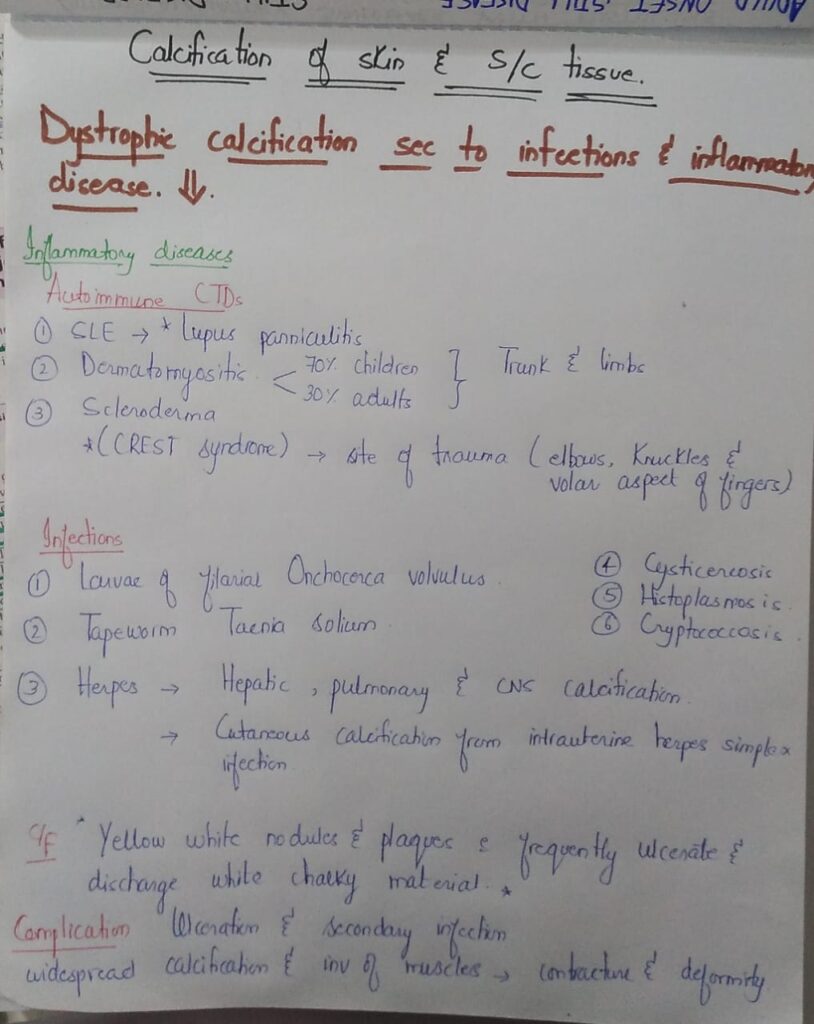 ADULT ONSET STILL DISEASE
Calcification of skin & S/C tissue.
Dystrophic calcification sec to infections & inflammatory
disease. ⇓.
Inflammatory diseases
Autoimmune CTDs
① SLE → * Lupus panniculitis
② Dermatomyositis < 70% children
30% adults } Trunk & limbs
③ Scleroderma
*(CREST syndrome) → site of trauma (elbows, Knuckles &
volar aspect of fingers)
Infections
① Larvae of filarial Onchocerca volvulus.
② Tapeworm Taenia solium.
③ Herpes → Hepatic, pulmonary & CNS calcification.
→ Cutaneous calcification from intrauterine herpes simplex
infection.
④ Cysticercosis
⑤ Histoplasmosis.
⑥ Cryptococcosis.
C/F * Yellow white nodules & plaques c frequently ulcerate &
discharge white chalky material. *
Complication Ulceration & secondary infection
widespread calcification & inv of muscles → contracture & deformity.